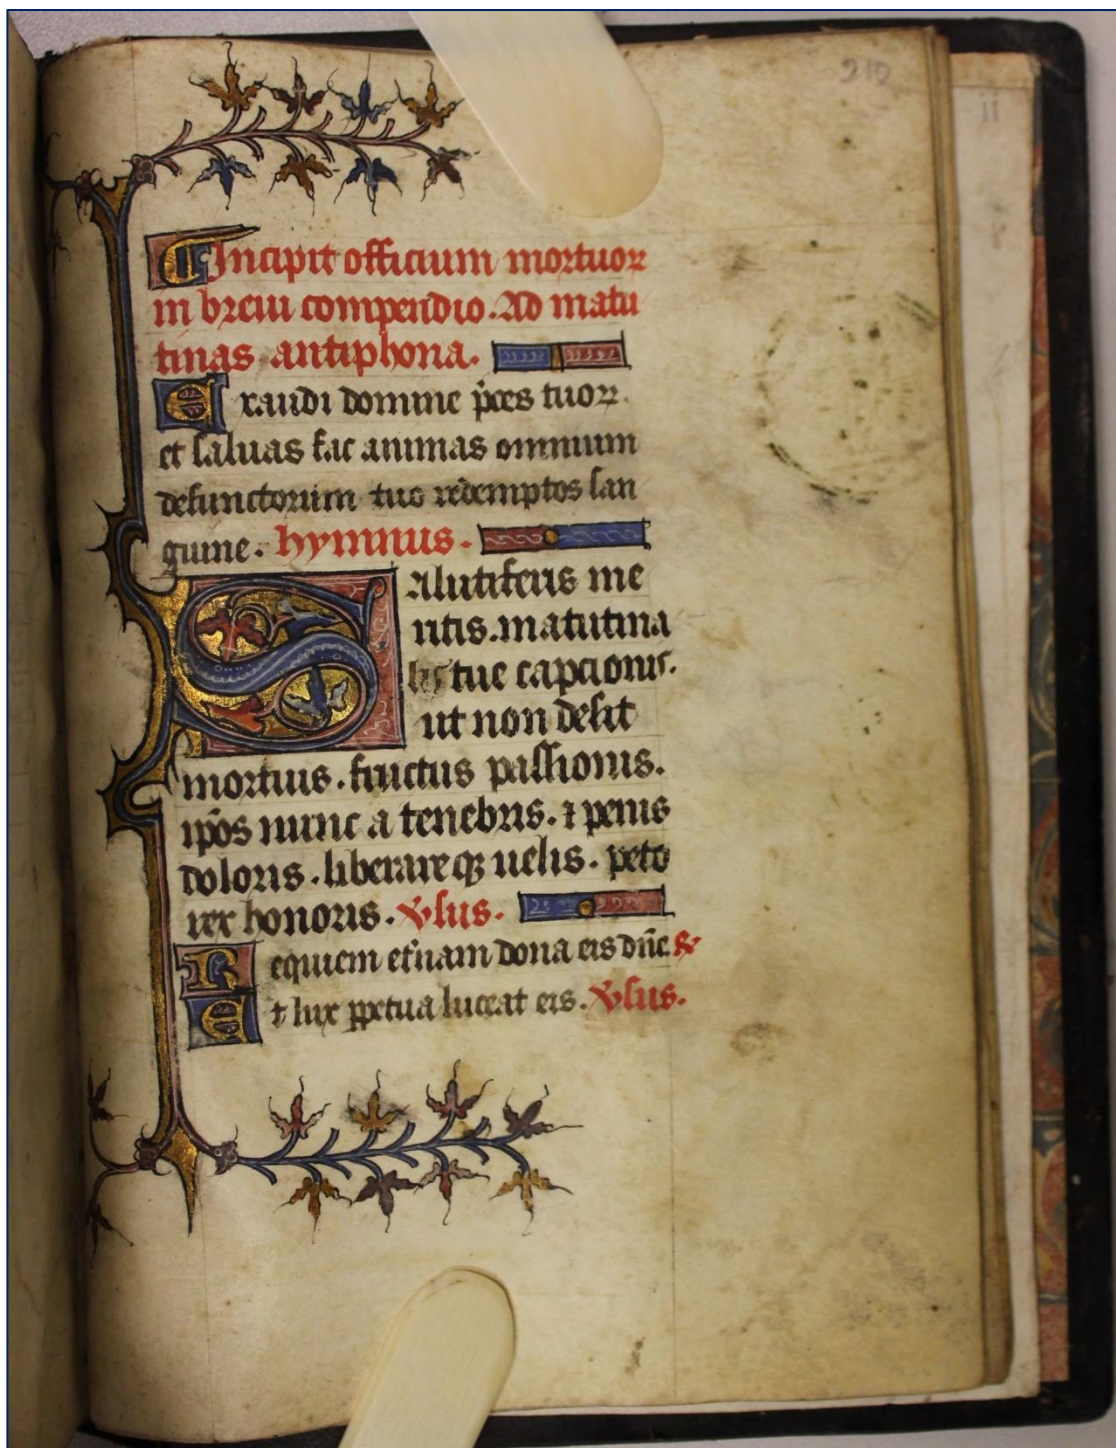 210
Incipit officium mortuoꝝ
in breui compendio. Ad matu
tinas antiphona.
Exaudi domine p̄ces tuoꝝ
et saluas fac animas omnium
defunctorum tuo redemptos san
guine. hymnus.
Salutiferis me
ritis. matutina
lis tue capcionis.
ut non desit
mortuis. fructus passionis.
ip̄os nunc a tenebris. ⁊ penis
doloris. liberareqꝫ uelis. peto
rex honoris. v̾sus.
Requiem et̾nam dona eis dn̄e
Et lux ꝑpetua luceat eis. v̾sus.